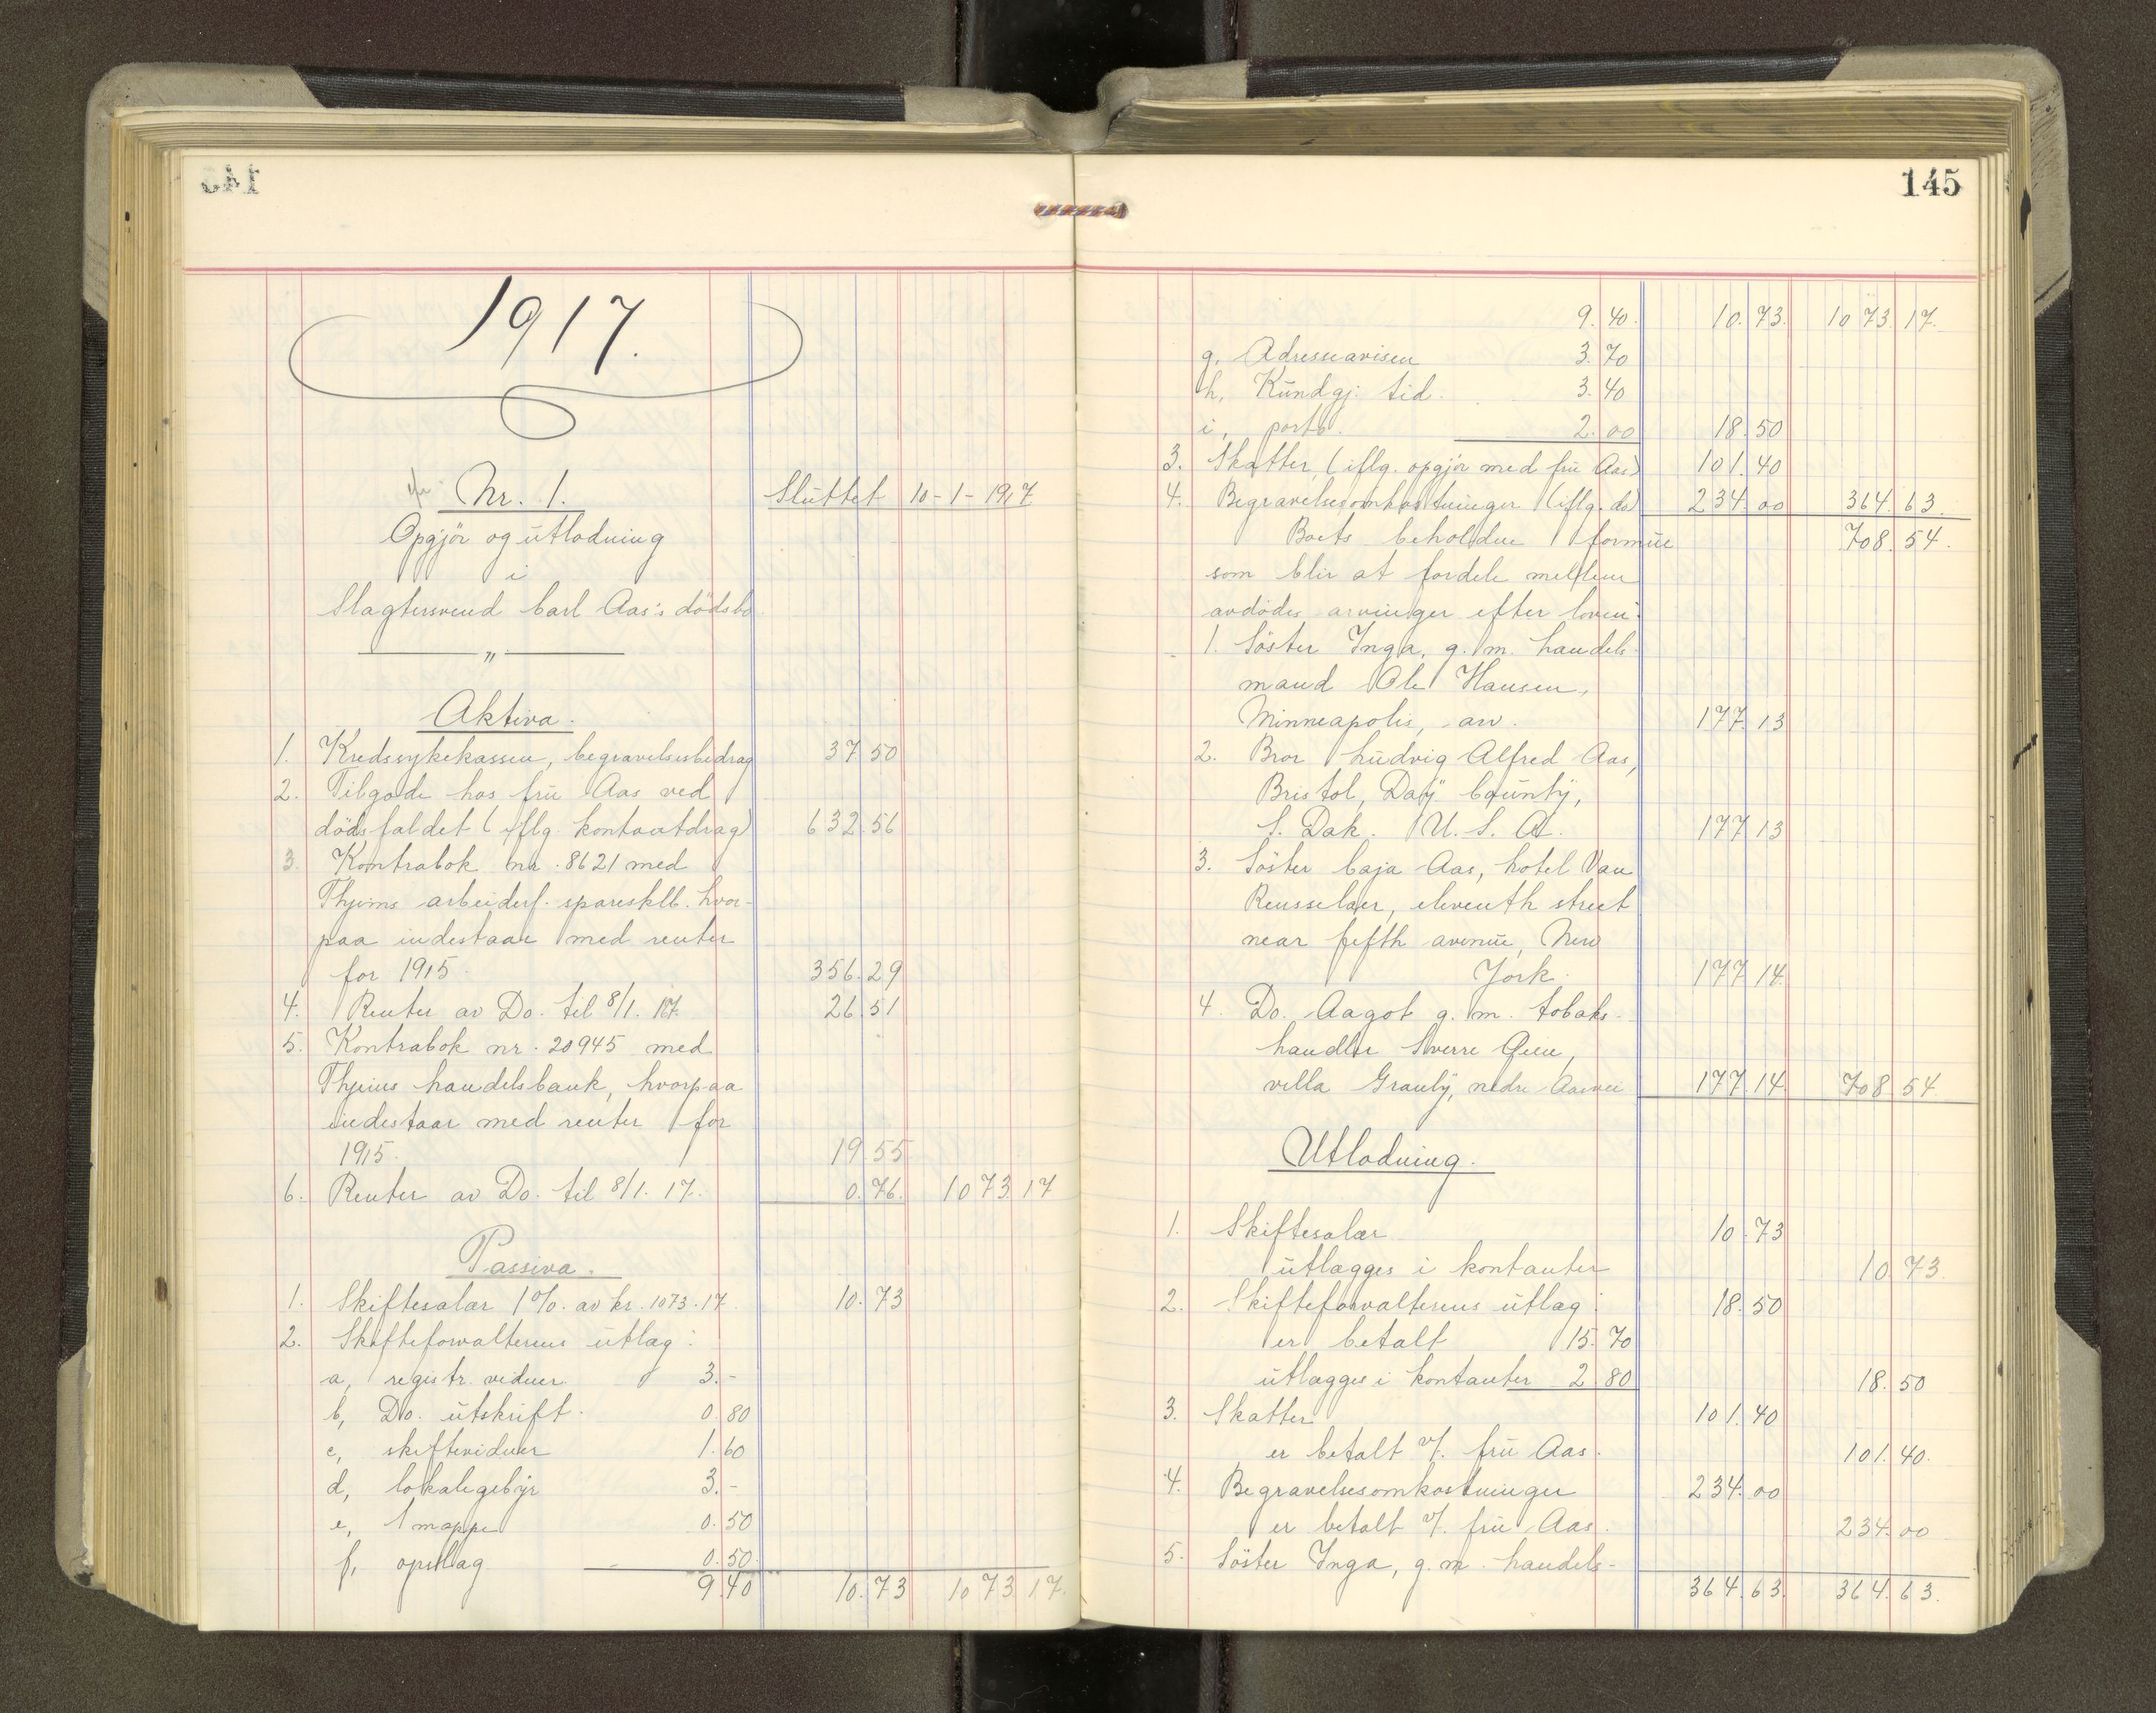 1917.
Nr. 1. Sluttet 10-1-1917
Opgjör og utlodning
i
Slagtersvend Carl Aas's dödsbo
"
Aktiva.
1. Kredssykekassen, begravelsesbidrag 37.50
2. Tilgode hos fru Aas ved
dödsfaldet (iflg. kontantdrag) 632.56
3. Kontrabok nr. 8621 med
Thjems arbeiderf. spareskllb. hvor-
paa indestaar med renter
for 1915. 356.29
4. Renter av Do. til 8/1. 17. 26.51
5. Kontrabok nr. 20945 med
Thjems handelsbank, hvorpaa
indestaar med renter for
1915. 19.55
6. Renter av Do. til 8/1. 17. 0.76. 1073 17
Passiva.
1. Skiftesalær 1%. av kr. 1073.17 10.73
2. Skifteforvalterens utlæg:
a, registr. vidner. 3.-
b, Do. utskrift. 0.80
c, skiftevidner 1.60
d, lokalegebyr 3.-
e, 1 mappe 0.50
f, opslag 0.50.
9.40 10.73 1073 17.
145
9.40. 10.73. 1073 17.
g, Adresseavisen 3.70
h, Kundgj. tid. 3.40
i, porto. 2.00 18.50
3. Skatter, (iflg. opgjör med fru Aas) 101.40
4. Begravelsesomkostninger (iflg. do) 234.00 364.63.
Boets beholdne formue 708.54.
som blir at fordele mellem
avdödes arvinger efter loven:
1. Söster Inga, g. m. handels-
mand Ole Hansen,
Minneapolis, arv. 177.13
2. Bror Ludvig Alfred Aas,
Bristol, Day County,
S. Dak. U. S. A. 177 13
3. Söster Caja Aas, hotel Van
Rensselaer, eleventh street
near fefth avenue, New
York. 177 14.
4. Do. Aagot g. m. tobaks-
handler Sverre Qien,
villa Granly, nedre 177.14. 708.54
Utlodning.
1. Skiftesalær 10.73
utlægges i kontanter 10.73.
2. Skifteforvalterens utlæg: 18.50
er betalt 15.70
utlægges i kontanter 2 80 18.50
3. Skatter 101.40
er betalt v/. fru Aas. 101.40.
4. Begravelsesomkostninger 234.00
er betalt v/. fru Aas. 234.00
5. Söster Inga, g. m. handels-
364.63. 364.63.